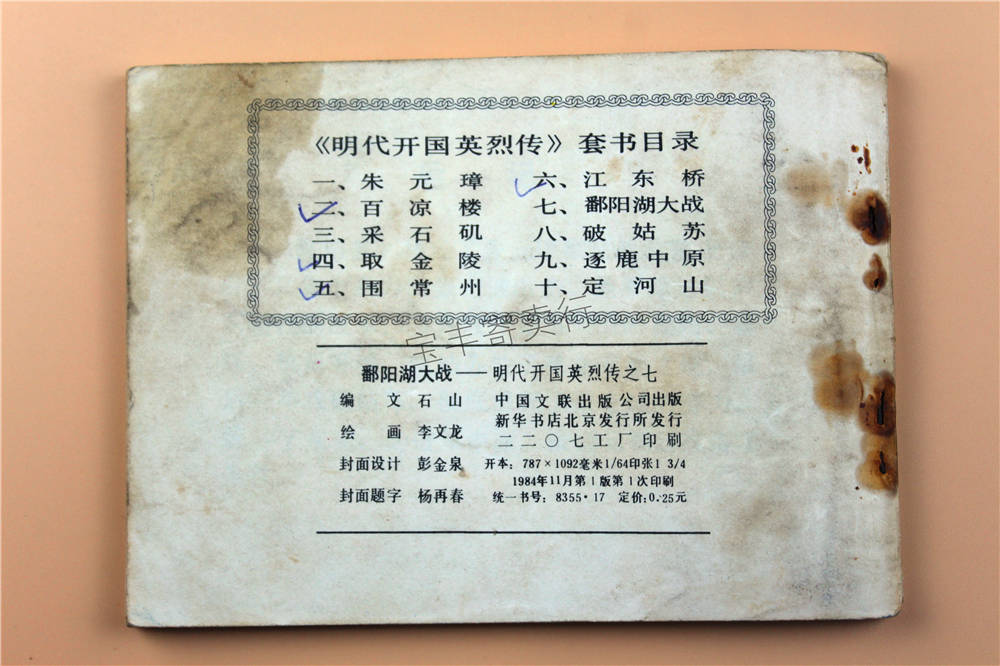 《明代开国英烈传》套书目录
一、朱元璋　六、江东桥
二、百凉楼　七、鄱阳湖大战
三、采石矶　八、破姑苏
四、取金陵　九、逐鹿中原
五、围常州　十、定河山
宝丰寄卖行
鄱阳湖大战——明代开国英烈传之七
编文 石山　中国文联出版公司出版
新华书店北京发行所发行
绘画 李文龙
二二〇七工厂印刷
封面设计 彭金泉　开本：787×1092毫米1/64印张1 3/4
1984年11月第1版第1次印刷
封面题字 杨再春　统一书号：8355·17 定价：0.25元